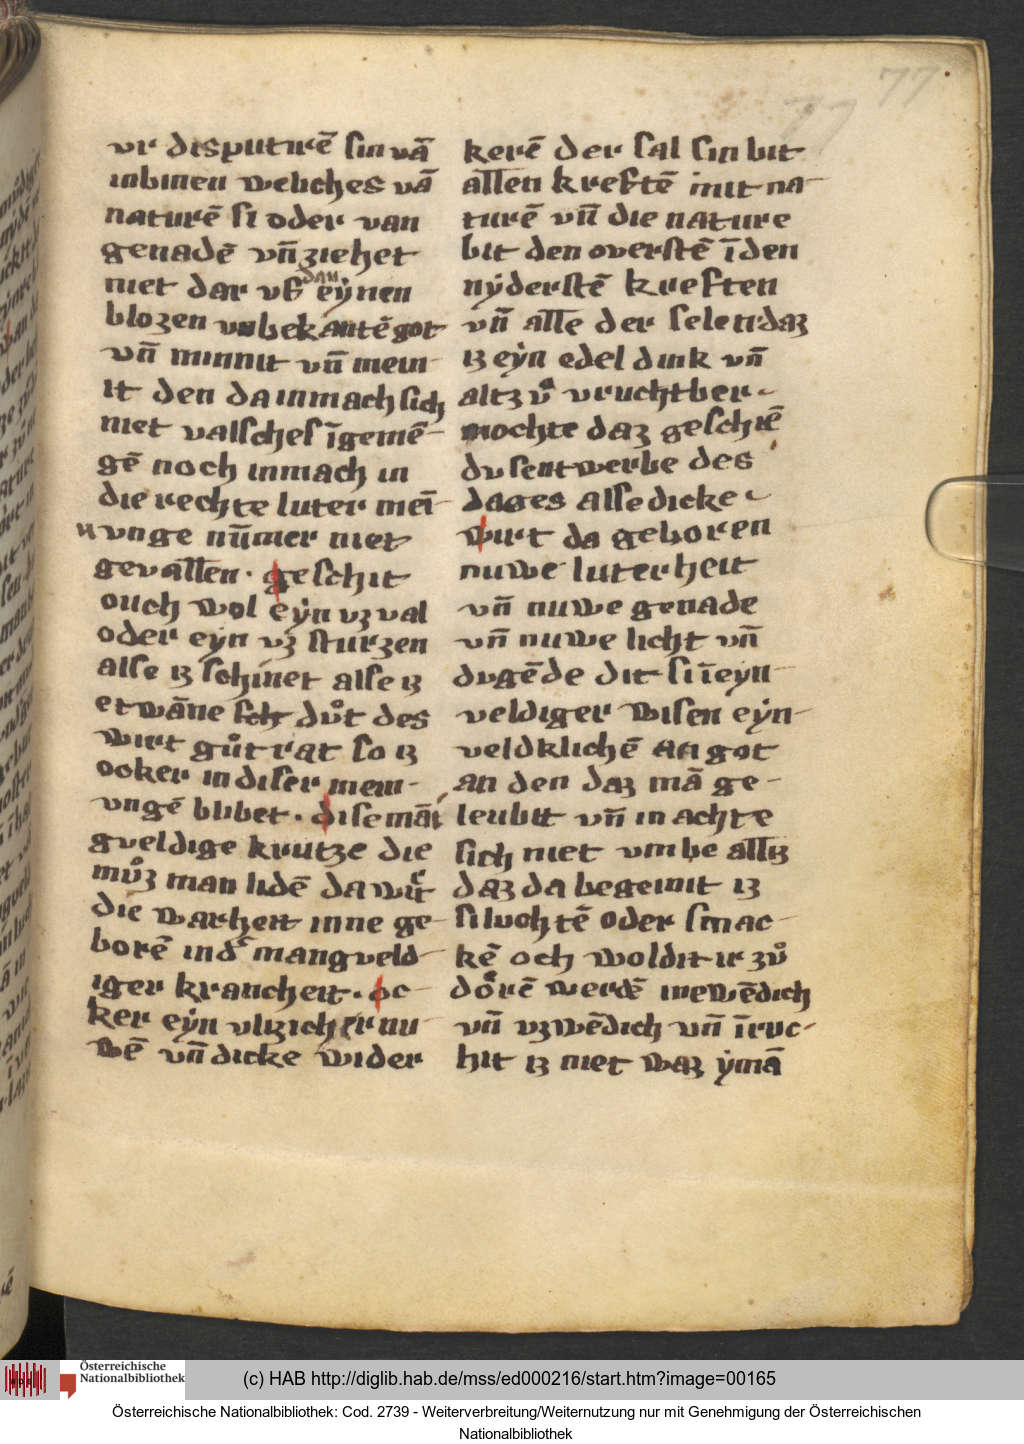 77
vr disputirē sin vā
inbinen weliches vā
naturē si oder van
genadē vn̄ ziehet
niet dar vf dan eẏnen
blozen vnbekantē got
vn̄ minnit vn̄ mein
it den da inmach sich
niet valsches īgemē
gē noch inmach in
die rechte luter meī
vnge nūmer niet
gevallen · geschit
ouch wol eẏn vz val
oder eẏn vz sturzen
alse iz schinet alse iz
etwāne sch důt des
wirt gůt rat so iz
ocker in diser mein
vngē blibet · dise māi
gveldige krutze die
můz man lidē da wirt
die warheit inne ge
borē in d mangveld
iger krancheit · oc
ker eẏn vlizich er nu
wē vn̄ dicke wider
kerē der sal sin bit
allen kreftē mit na
turē vn̄ die nature
bit den overstē īden
nẏderstē kreften
vn̄ alle der selen daz
iz eẏn edel dink vn̄
altzv vruchtber
mochte daz geschiē
dv sentwerbe des
dages alse dicke
wirt da geboren
nuwe luterheit
vn̄ nuwe genade
vn̄ nuwe licht vn̄
dvgēde dit si īeẏn
veldiger wisen eẏn
veldklichē an got
an den daz mā ge
leubit vn̄ in achte
sich niet vmbe alliz
daz da begeinit iz
si luchtē oder smac
kē och woldit ir zů
dorē werdē inewēdich
vn̄ vzwēdich vn̄ īruc
hit iz niet waz ẏmā
(c) HAB http://diglib.hab.de/mss/ed000216/start.htm?image=00165
Österreichische
Nationalbibliothek
Österreichische Nationalbibliothek: Cod. 2739 - Weiterverbreitung/Weiternutzung nur mit Genehmigung der Österreichischen
Nationalbibliothek